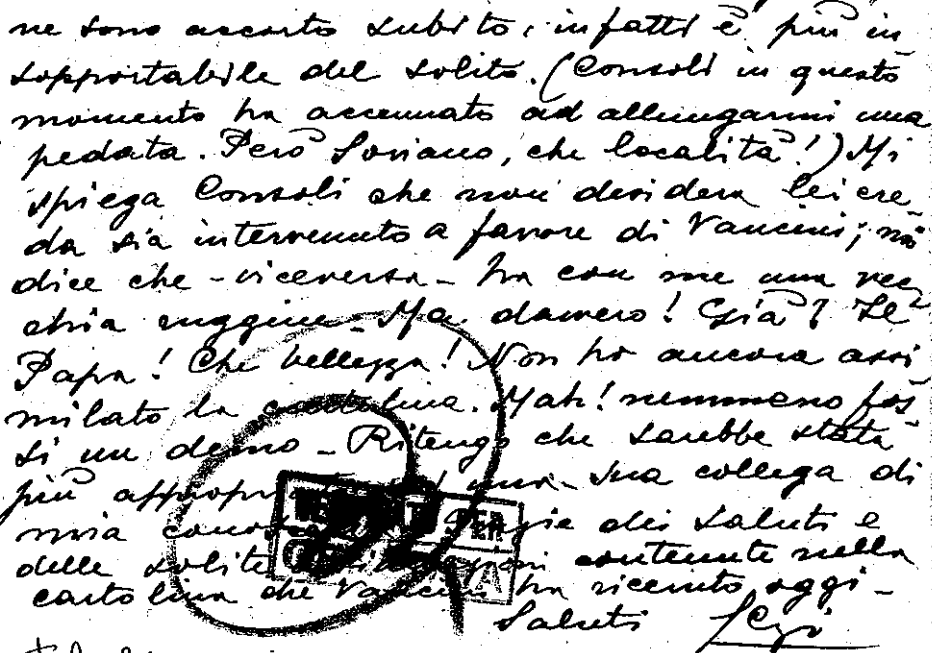 ne sono accorto subito; infatti è più in
sopportabile del solito. (Consoli in questo
momento ha accennato ad allungarmi una
pedata. Però Soriano, che località!) Mi
spiega Consoli che non desidera lei cre
da sia intervenuto a favore di Vancini; mi
dice che - viceversa - ha con me una vec
chia ruggine - Ma davvero! Già? Il
Papa! Che bellezza! Non ho ancora assi
milato la cartolina. Mah! nemmeno fos
si un demo - Ritengo che sarebbe stata
più una sua collega di
mia dei saluti e
delle solite contenute nella
cartolina che Vancini ha ricevuto oggi -
Saluti
PER